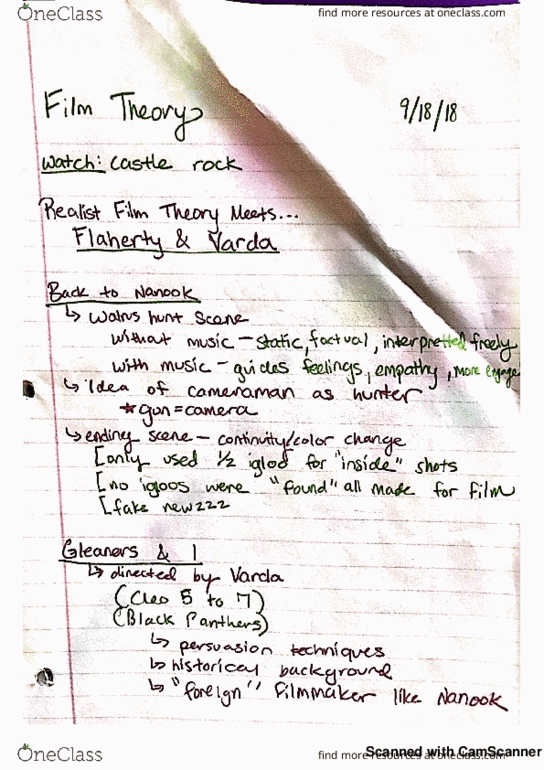 OneClass
find more resources at oneclass.com
Film Theory
9/18/18
Watch: castle rock
Realist Film Theory Meets...
Flaherty & Varda
Back to Nanook
↳ Walrus hunt scene
without music - static, factual, interpretted freely
with music - guides feelings, empathy, more engage
↳ Idea of cameraman as hunter
* gun = camera
↳ ending scene - continuity/color change
[only used 1/2 igloo for "inside" shots
[no igloos were "found" all made for film
[fake newzzz
Gleaners & I
↳ directed by Varda
(Cleo 5 to 7)
(Black Panthers)
↳ persuasion techniques
↳ historical background
↳ "foreign" filmmaker like Nanook
OneClass
find more resources at oneclass.com
Scanned with CamScanner